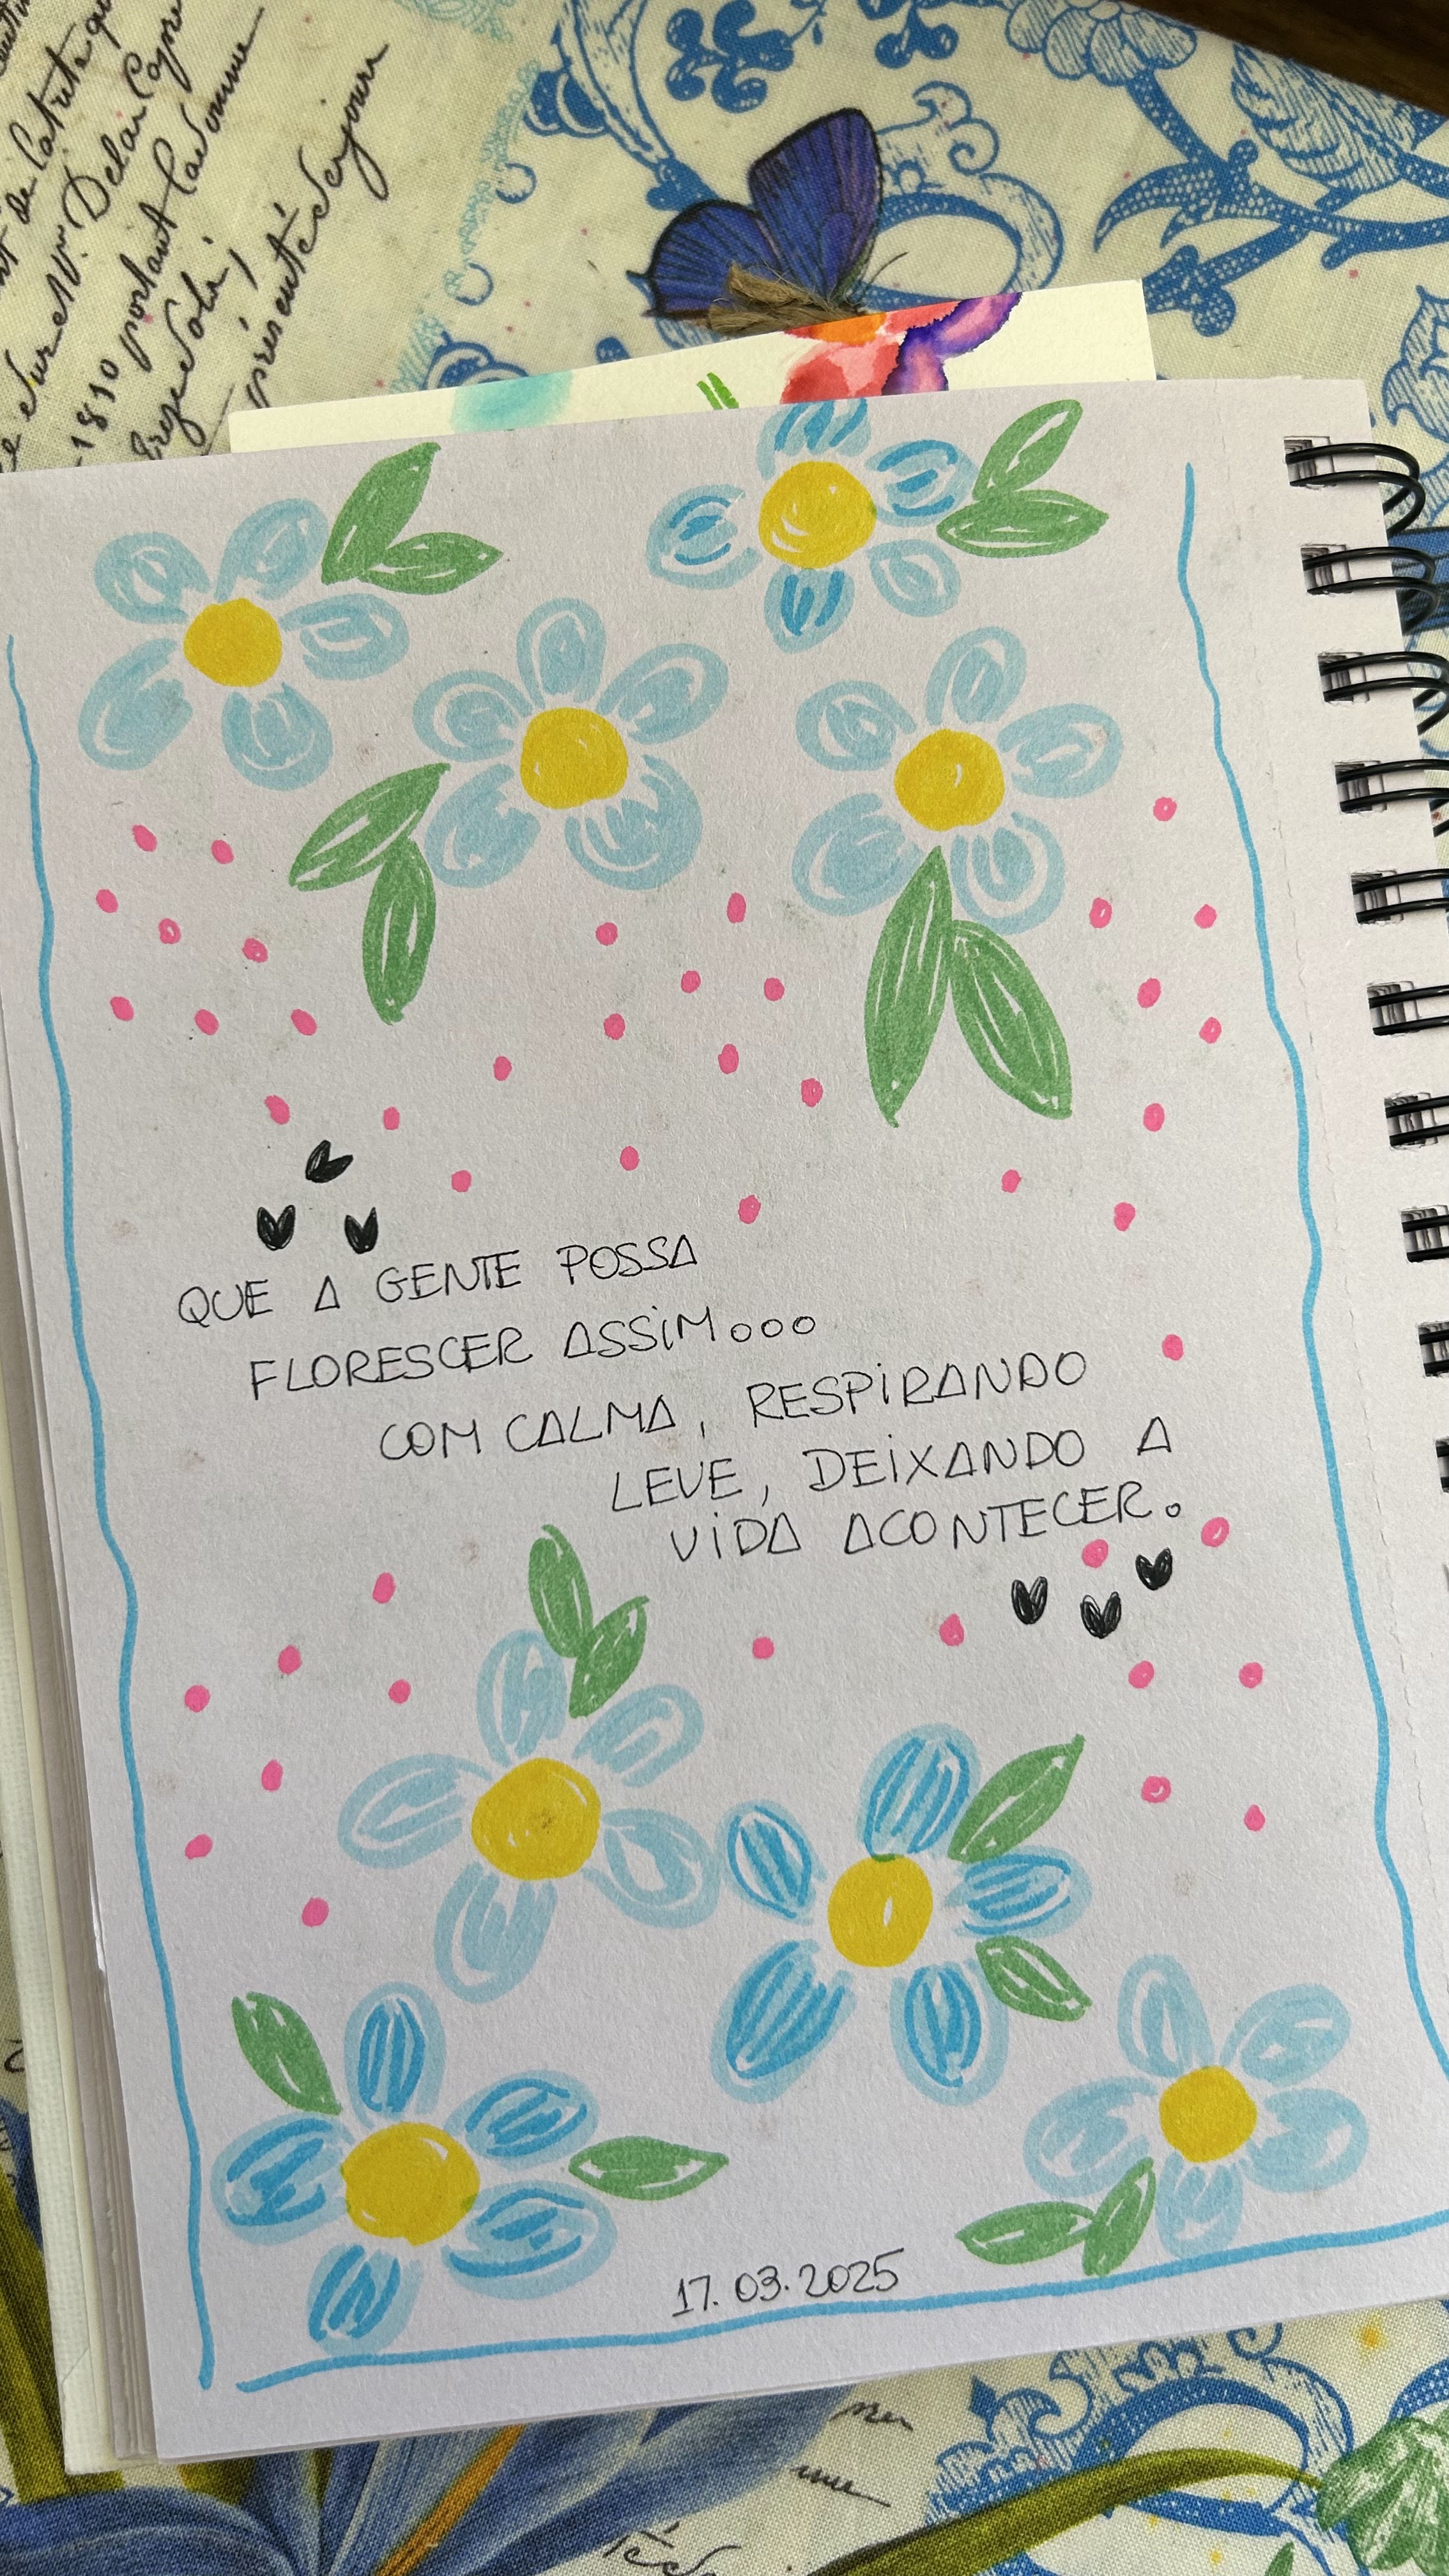 1830 portant
présenté
QUE A GENTE POSSA
FLORESCER ASSIM...
COM CALMA, RESPIRANDO
LEVE, DEIXANDO A
VIDA ACONTECER.
17.03.2025